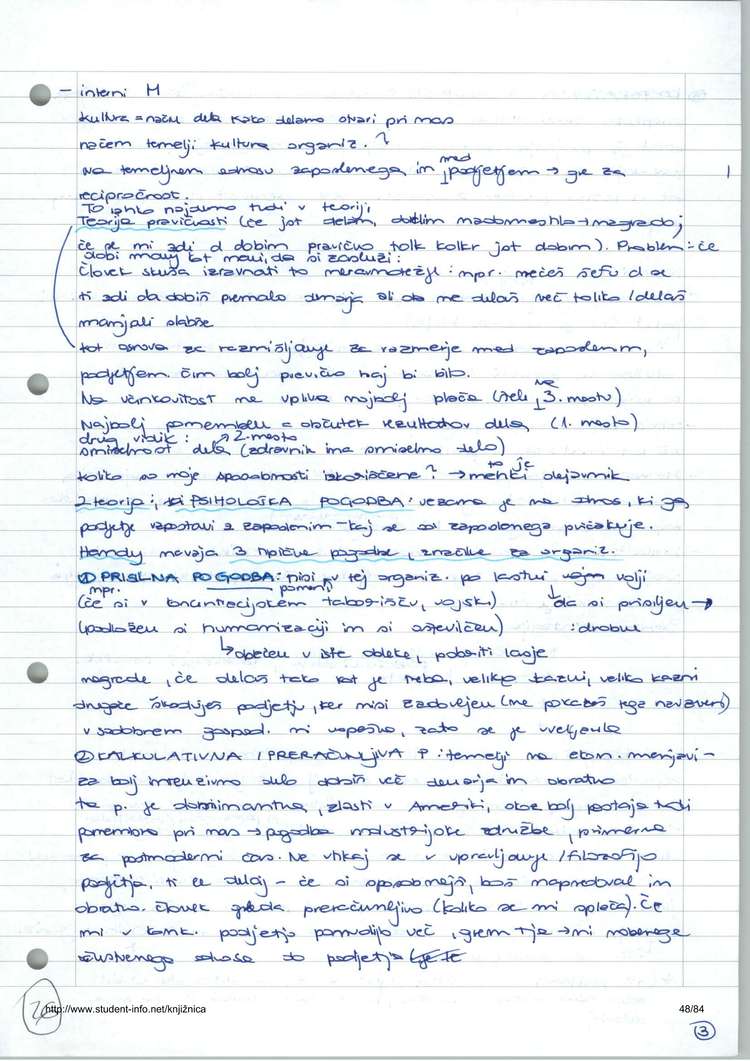 - interni M
kultura = način dela kako delamo stvari pri nas
na čem temelji kultura organiz. ?
Na temeljnem odnosu zaposlenega in med podjetjem → gre za
recipročnost.
To lahko najdemo tudi v teoriji
Teorija pravičnosti (če jst delam, dobim nadomestilo → nagrado;
če se mi zdi d dobim pravično tolk kolkr jst dobim). Problem: če
dobi manj kot misli, da si zasluži:
Človek skuša izravnati to neravnotežje: npr. rečeš šefu d se
ti zdi da dobiš premalo denarja ali da ne delaš več toliko / delaš
manj ali slabše
kot osnova za razmišljanje za razmerje med zaposlenim,
podjetjem. čim bolj pravično naj bi bilo.
Na učinkovitost ne vpliva najbolj plača (šele na 3. mestu)
Najbolj pomemben = občutek rezultatov dela (1. mesto)
drug vidik: → 2. mesto
smiselnost dela (zdravnik ima smiselno delo)
koliko so moje sposobnosti izkoriščene? → to je mehki dejavnik
2 teorija: PSIHOLOŠKA POGODBA: vezana je na odnos, ki ga
podjetje vzpostavi z zaposlenim - kaj se od zaposlenega pričakuje.
Handy navaja 3 tipične pogodbe, značilne za organiz.
① PRISILNA POGODBA: nisi v tej organiz. po lastni volji
npr. pomeni,
(če si v koncentracijskem taborišču, vojski) da si prisiljen →
(podložen si humanizaciji in si oštevilčen) : drobne
↳ oblečen v iste obleke, pobriti lasje
nagrade, če delaš tako kot je treba, veliko kazni, veliko kazni
drugače škoduješ podjetju, ker nisi zadovoljen (ne pokažeš tega navzven)
v sodobnem gospod. ni uspešno, zato se je uveljavila
② KALKULATIVNA / PRERAČUNLJIVA P: temelji na ekon. menjavi -
za bolj intenzivno delo dobiš več denarja in obratno
ta p. je dominantna, zlasti v Ameriki, sbe bolj postaja tudi
pomembna pri nas → pogodba industrijske združbe, primerna
za postmoderni čas. Ne vtikaj se v upravljanje / filozofijo
podjetja, ti le delaj - če si sposobnejši, boš napredoval in
obratno. Človek gleda preračunljivo (koliko se mi splača). Če
mi v konk. podjetju ponudijo več, grem tja → ni nobenega
čustvenega odnosa do podjetja
http://www.student-info.net/knjižnica
48/84
③